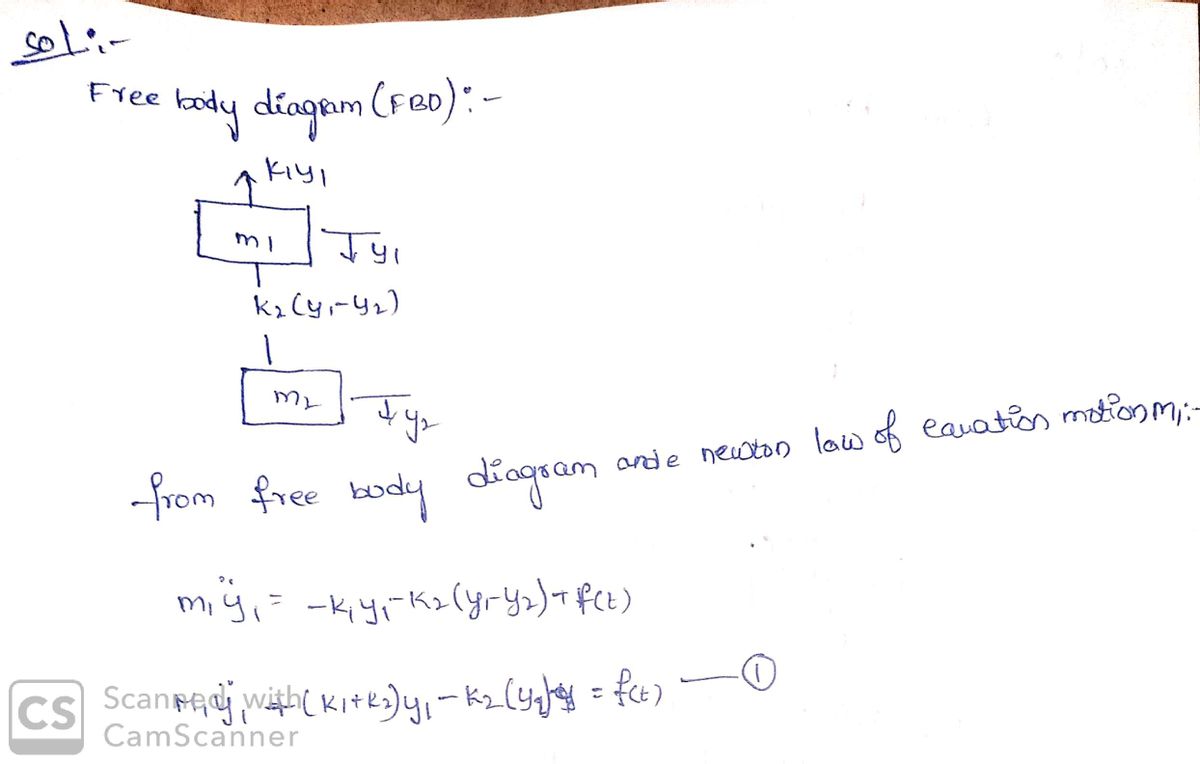 sol:-
Free body diagram (FBD):-
k1y1
m1 y1
k2(y1-y2)
m2 y2
from free body diagram and e newton law of equation motion m1:-
m1ÿ1 = -k1y1-k2(y1-y2)+f(t)
m1ÿ1 + (k1+k2)y1 - k2(y2) = f(t) — ①
CS Scanned with
CamScanner